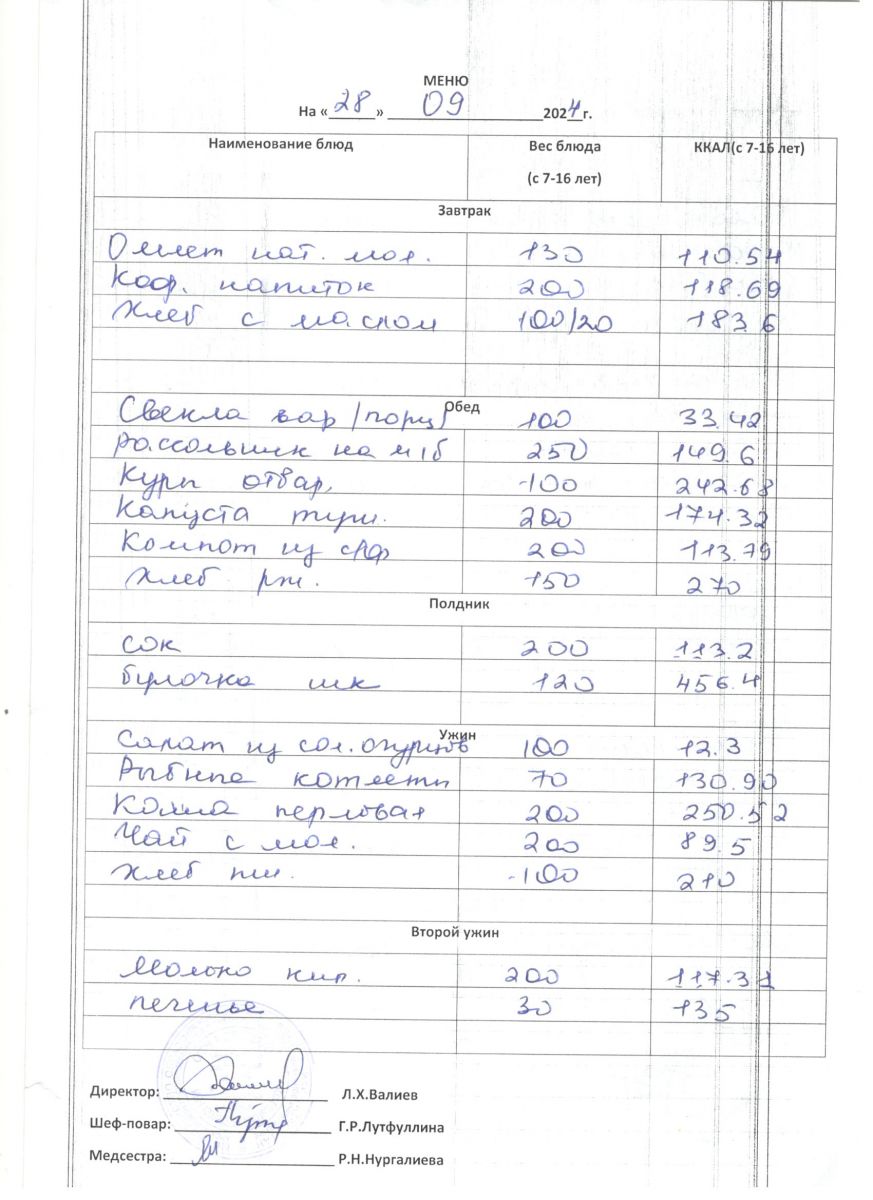 МЕНЮ
На «28» 09 2024г.
Наименование блюд Вес блюда (с 7-16 лет) ККАЛ(с 7-16 лет)
Завтрак
Омлет нат. мол. 130 110.54
Коф. напиток 200 118.69
Хлеб с маслом 100/20 183.6
Обед
Свекла вар /порц/ 100 33.42
Рассольник на м/б 250 149.6
Куры отвар. 100 242.68
Капуста туш. 200 174.32
Компот из с/ф 200 113.79
Хлеб рж. 150 270
Полдник
Сок 200 113.2
Булочка шк 120 456.4
Ужин
Салат из сол. огурцов 100 12.3
Рыбные котлеты 70 130.90
Каша перловая 200 250.52
Чай с мол. 200 89.5
Хлеб пш. 100 210
Второй ужин
Молоко кип. 200 117.31
печенье 30 135
Директор: Л.Х.Валиев
Шеф-повар: Г.Р.Лутфуллина
Медсестра: Р.Н.Нургалиева